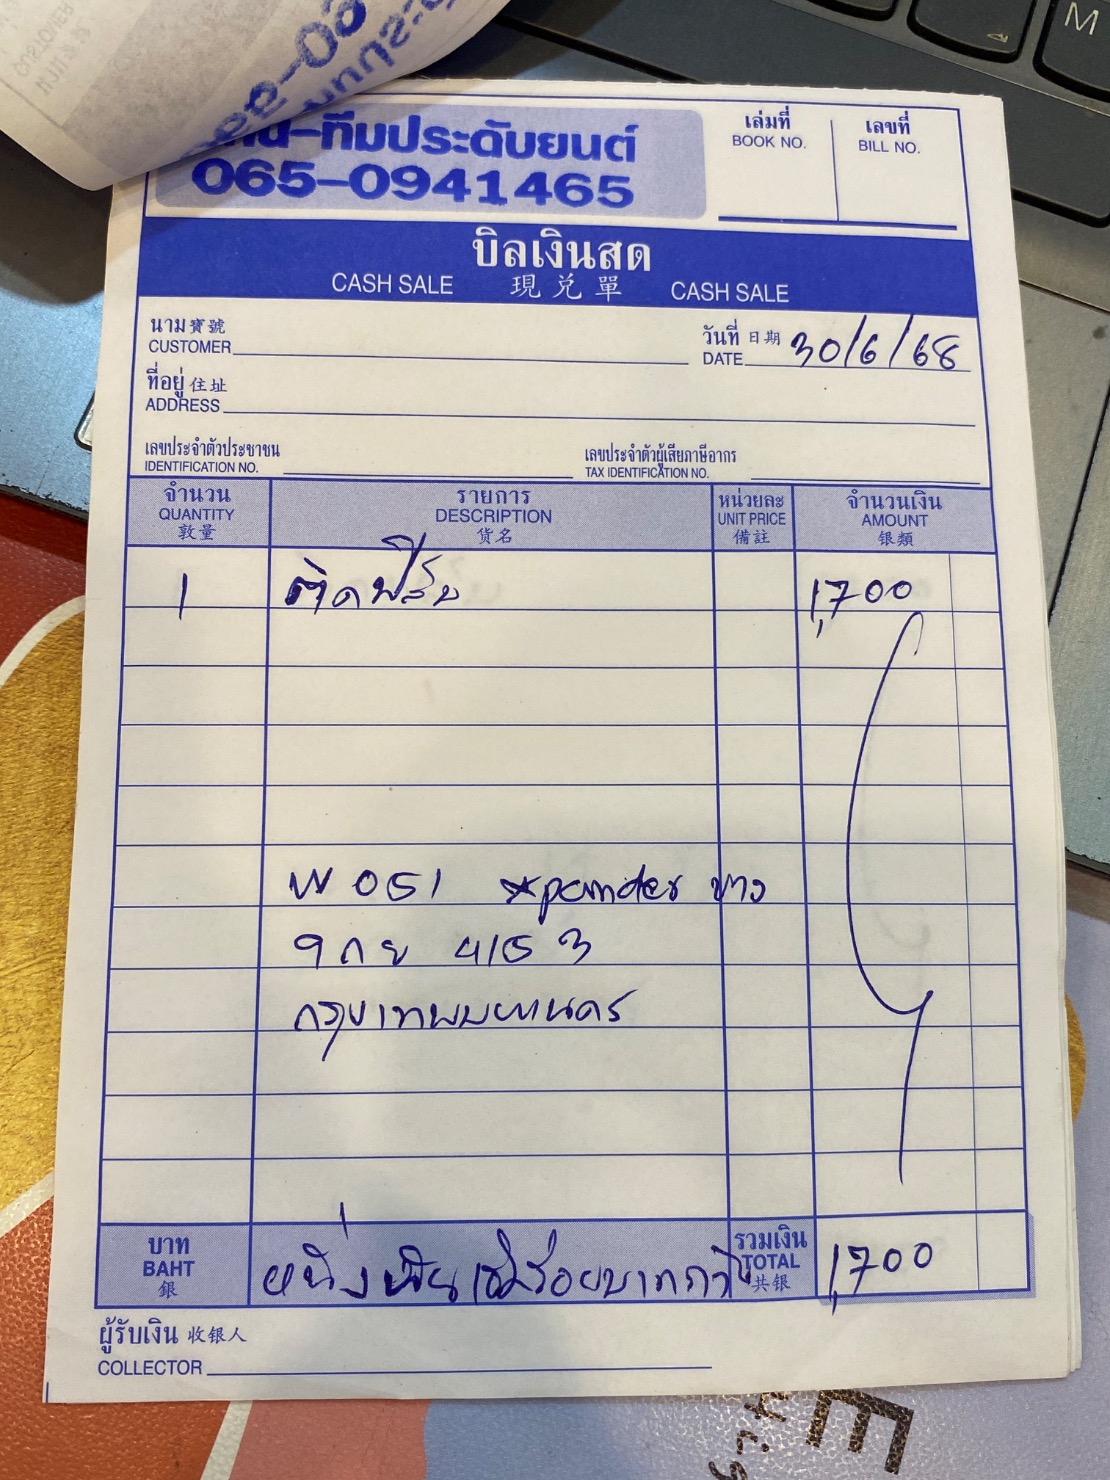 -ทีมประดับยนต์
065-0941465
เล่มที่
BOOK NO.
เลขที่
BILL NO.
บิลเงินสด
CASH SALE 現兌單 CASH SALE
นาม寶號
CUSTOMER
วันที่ 日期
DATE 30/6/68
ที่อยู่ 住址
ADDRESS
เลขประจำตัวประชาชน
IDENTIFICATION NO.
เลขประจำตัวผู้เสียภาษีอากร
TAX IDENTIFICATION NO.
จำนวน
QUANTITY
敦量
รายการ
DESCRIPTION
货名
หน่วยละ
UNIT PRICE
備註
จำนวนเงิน
AMOUNT
银類
1 ติดฟิล์ม 1,700
xpander ขาว
9กย 4153
กรุงเทพมหานคร
บาท
BAHT
銀
หนึ่งพันเจ็ดร้อยบาทถ้วน
รวมเงิน
TOTAL
共银
1,700
ผู้รับเงิน 收银人
COLLECTOR
M
E